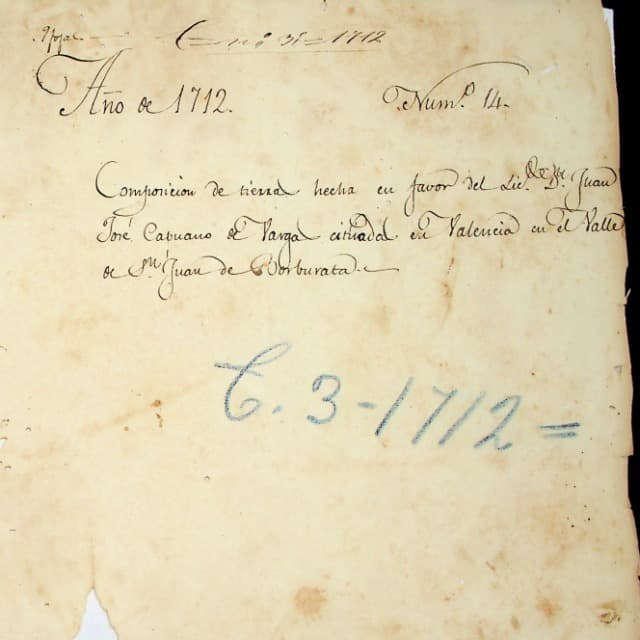 C nº 3. = 1712
Año de 1712. Num.º 14.
Composicion de tierras hecha en favor del Lic.do Dn. Juan
José Capuano de Vargas cituadas en Valencia en el Valle
de Sn. Juan de Borburata.
C. 3 - 1712 =